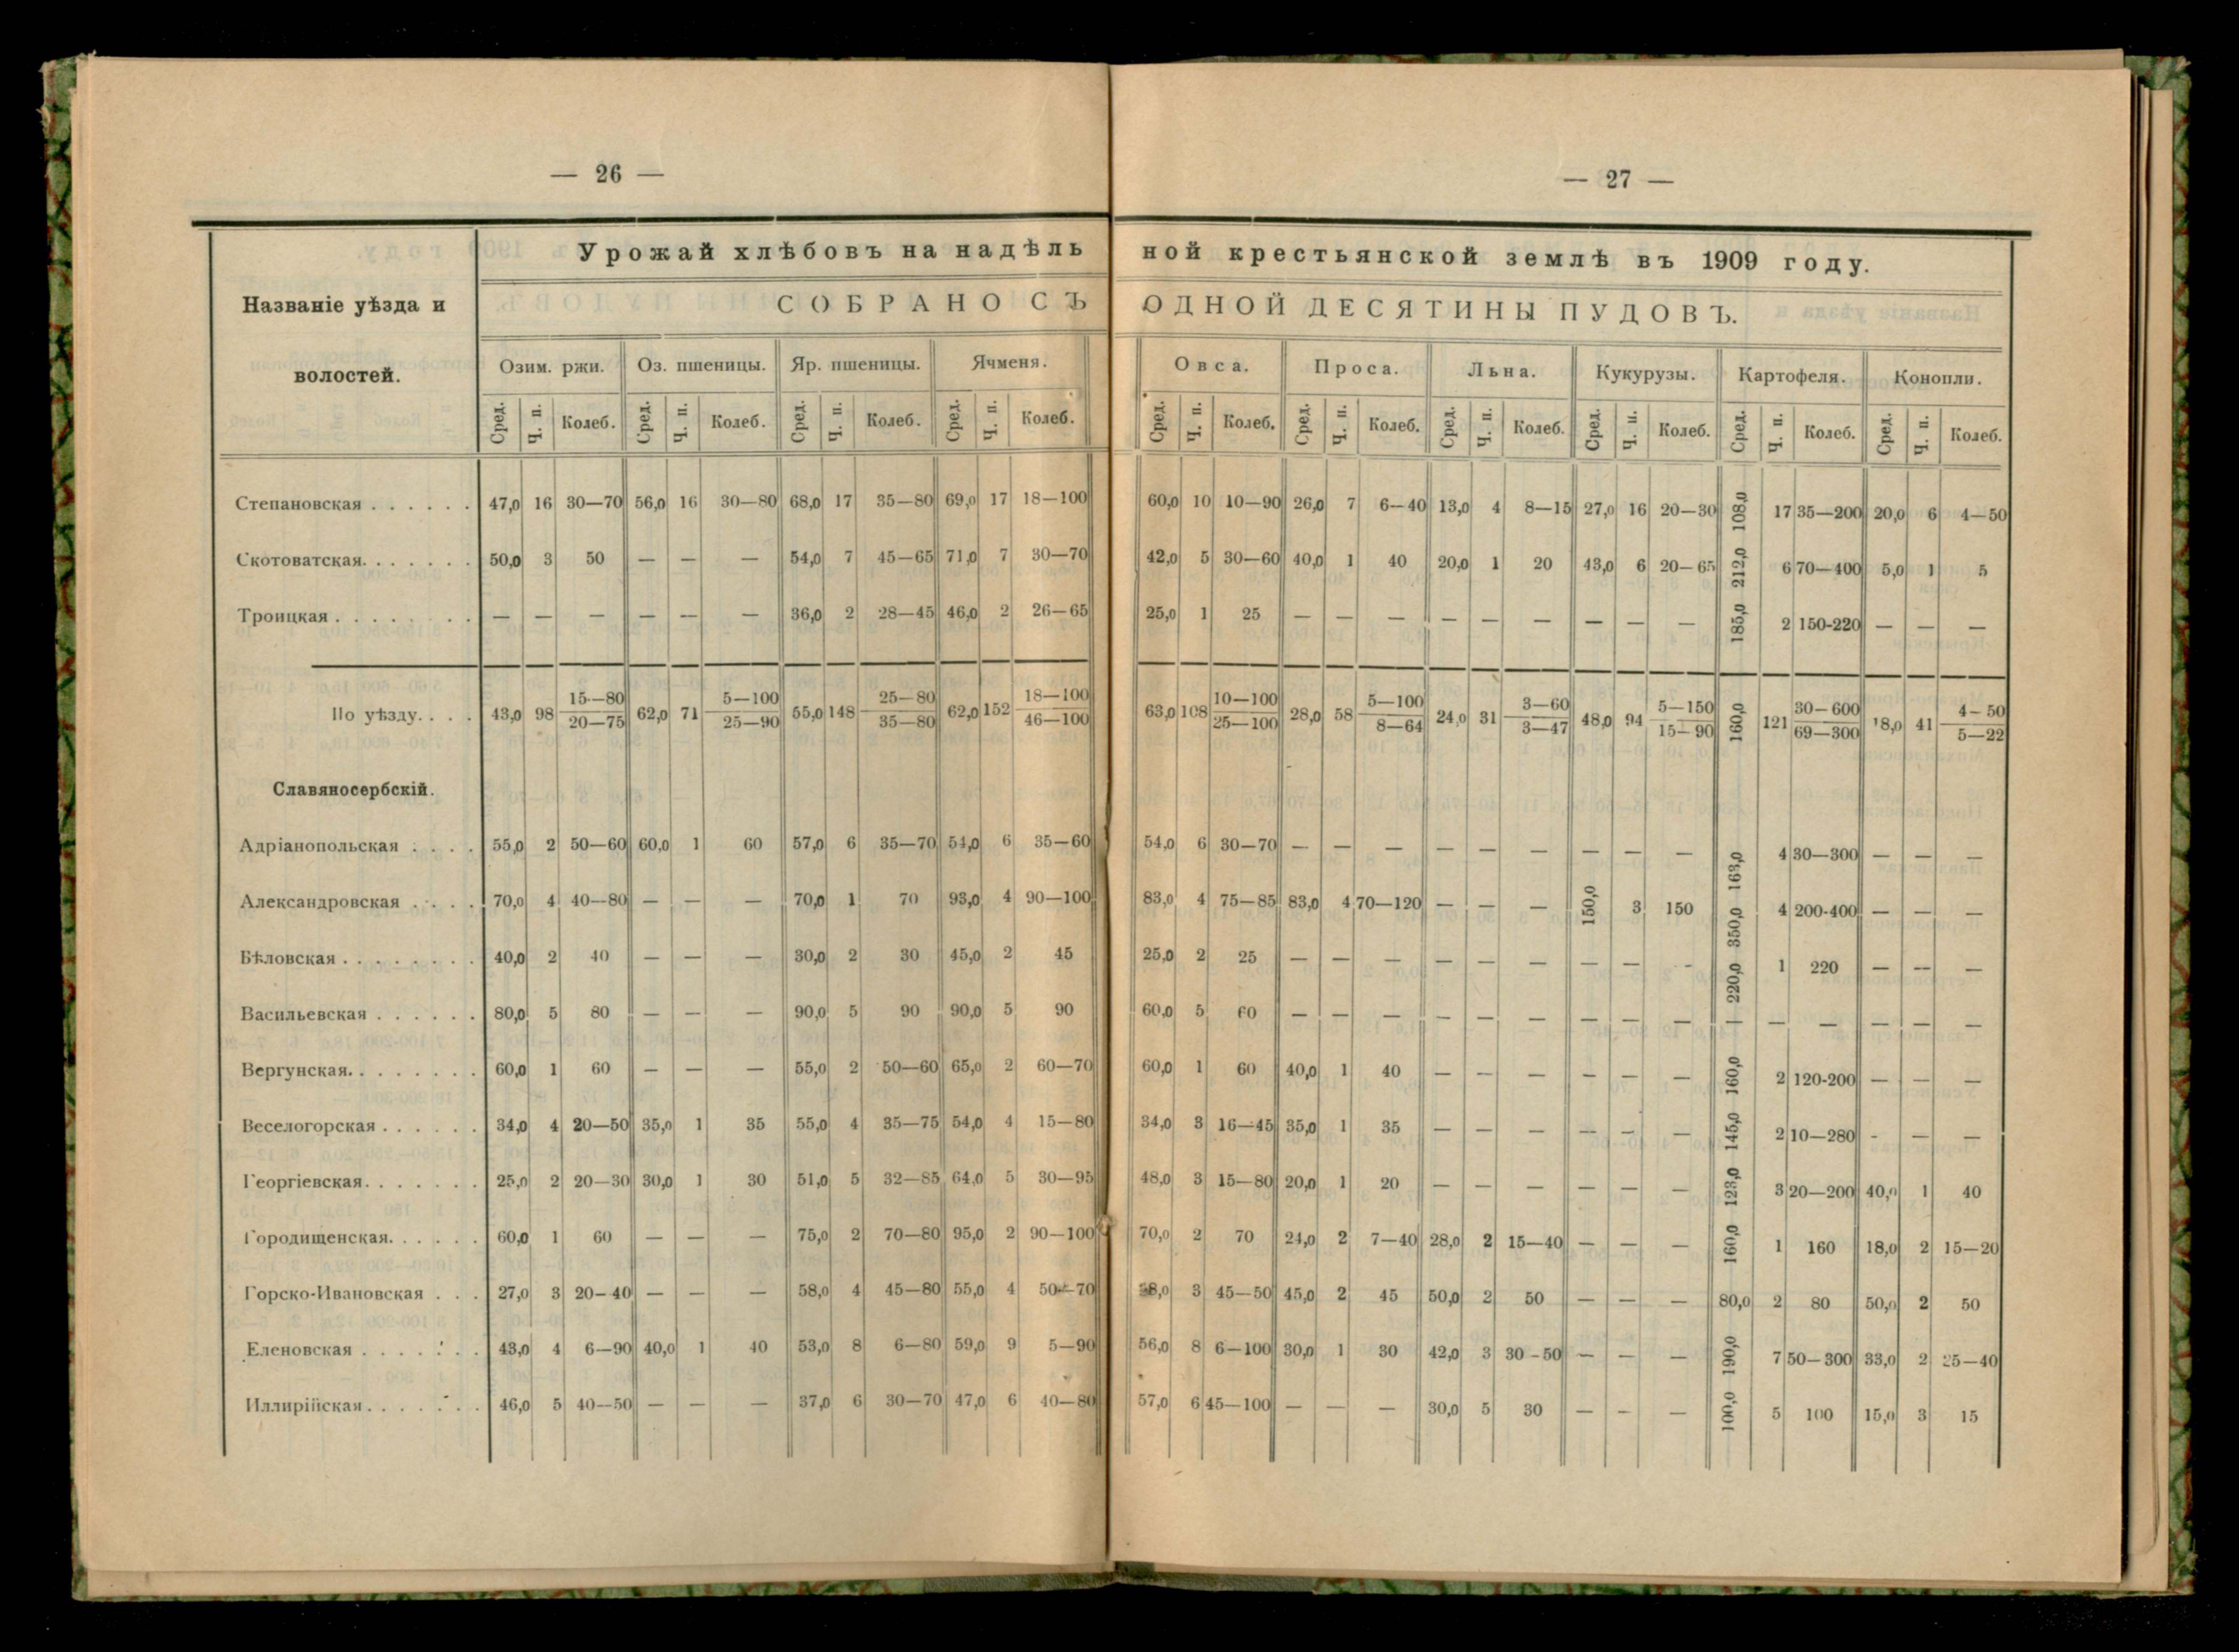 — 26 —
Урожай хлѣбовъ на надѣль
СОБРАНО СЪ
Названіе уѣзда и
волостей.
Озим. ржи. Оз. пшеницы. Яр. пшеницы. Ячменя.
Сред. Ч. п. Колеб. Сред. Ч. п. Колеб. Сред. Ч. п. Колеб. Сред. Ч. п. Колеб.
Степановская . . . . . . 47,0 16 30—70 56,0 16 30—80 68,0 17 35—80 69,0 17 18—100
Скотоватская. . . . . . . 50,0 3 50 — — — 54,0 7 45—65 71,0 7 30—70
Троицкая . . . . . . . . — — — — — — 36,0 2 28—45 46,0 2 26—65
По уѣзду. . . . 43,0 98 15—80 / 20—75 62,0 71 5—100 / 25—90 55,0 148 25—80 / 35—80 62,0 152 18—100 / 46—100
Славяносербскій.
Адріанопольская . . . . 55,0 2 50—60 60,0 1 60 57,0 6 35—70 54,0 6 35—60
Александровская . . . . 70,0 4 40—80 — — — 70,0 1 70 93,0 4 90—100
Бѣловская . . . . . . . . 40,0 2 40 — — — 30,0 2 30 45,0 2 45
Васильевская . . . . . . 80,0 5 80 — — — 90,0 5 90 90,0 5 90
Вергунская. . . . . . . . 60,0 1 60 — — — 55,0 2 50—60 65,0 2 60—70
Веселогорская . . . . . . 34,0 4 20—50 35,0 1 35 55,0 4 35—75 54,0 4 15—80
Георгіевская. . . . . . . 25,0 2 20—30 30,0 1 30 51,0 5 32—85 64,0 5 30—95
Городищенская. . . . . . 60,0 1 60 — — — 75,0 2 70—80 95,0 2 90—100
Горско-Ивановская . . . 27,0 3 20—40 — — — 58,0 4 45—80 55,0 4 50—70
Еленовская . . . . . . . 43,0 4 6—90 40,0 1 40 53,0 8 6—80 59,0 9 5—90
Иллирійская . . . . . . . 46,0 5 40—50 — — — 37,0 6 30—70 47,0 6 40—80
— 27 —
ной крестьянской землѣ въ 1909 году.
ОДНОЙ ДЕСЯТИНЫ ПУДОВЪ.
Овса. Проса. Льна. Кукурузы. Картофеля. Конопли.
Сред. Ч. п. Колеб. Сред. Ч. п. Колеб. Сред. Ч. п. Колеб. Сред. Ч. п. Колеб. Сред. Ч. п. Колеб. Сред. Ч. п. Колеб.
60,0 10 10—90 26,0 7 6—40 13,0 4 8—15 27,0 16 20—30 108,0 17 35—200 20,0 6 4—50
42,0 5 30—60 40,0 1 40 20,0 1 20 43,0 6 20—65 212,0 6 70—400 5,0 1 5
25,0 1 25 — — — — — — — — — 185,0 2 150-220 — — —
63,0 108 10—100 / 25—100 28,0 58 5—100 / 8—64 24,0 31 3—60 / 3—47 48,0 94 5—150 / 15—90 160,0 121 30—600 / 69—300 18,0 41 4—50 / 5—22
54,0 6 30—70 — — — — — — — — — 163,0 4 30—300 — — —
83,0 4 75—85 83,0 4 70—120 — — — 150,0 3 150 350,0 4 200-400 — — —
25,0 2 25 — — — — — — — — - 220,0 1 220 — — —
60,0 5 60 — — — — — — — — — — — — — — —
60,0 1 60 40,0 1 40 — — — — — — 160,0 2 120-200 — — —
34,0 3 16—45 35,0 1 35 — — — — — — 145,0 2 10—280 - — —
48,0 3 15—80 20,0 1 20 — — — — — — 123,0 3 20—200 40,0 1 40
70,0 2 70 24,0 2 7—40 28,0 2 15—40 — — — 160,0 1 160 18,0 2 15—20
3 45—50 45,0 2 45 50,0 2 50 — — — 80,0 2 80 50,0 2 50
56,0 8 6—100 30,0 1 30 42,0 3 30-50 — — — 190,0 7 50—300 33,0 2 25—40
57,0 6 45—100 — — — 30,0 5 30 — — — 100,0 5 100 15,0 3 15